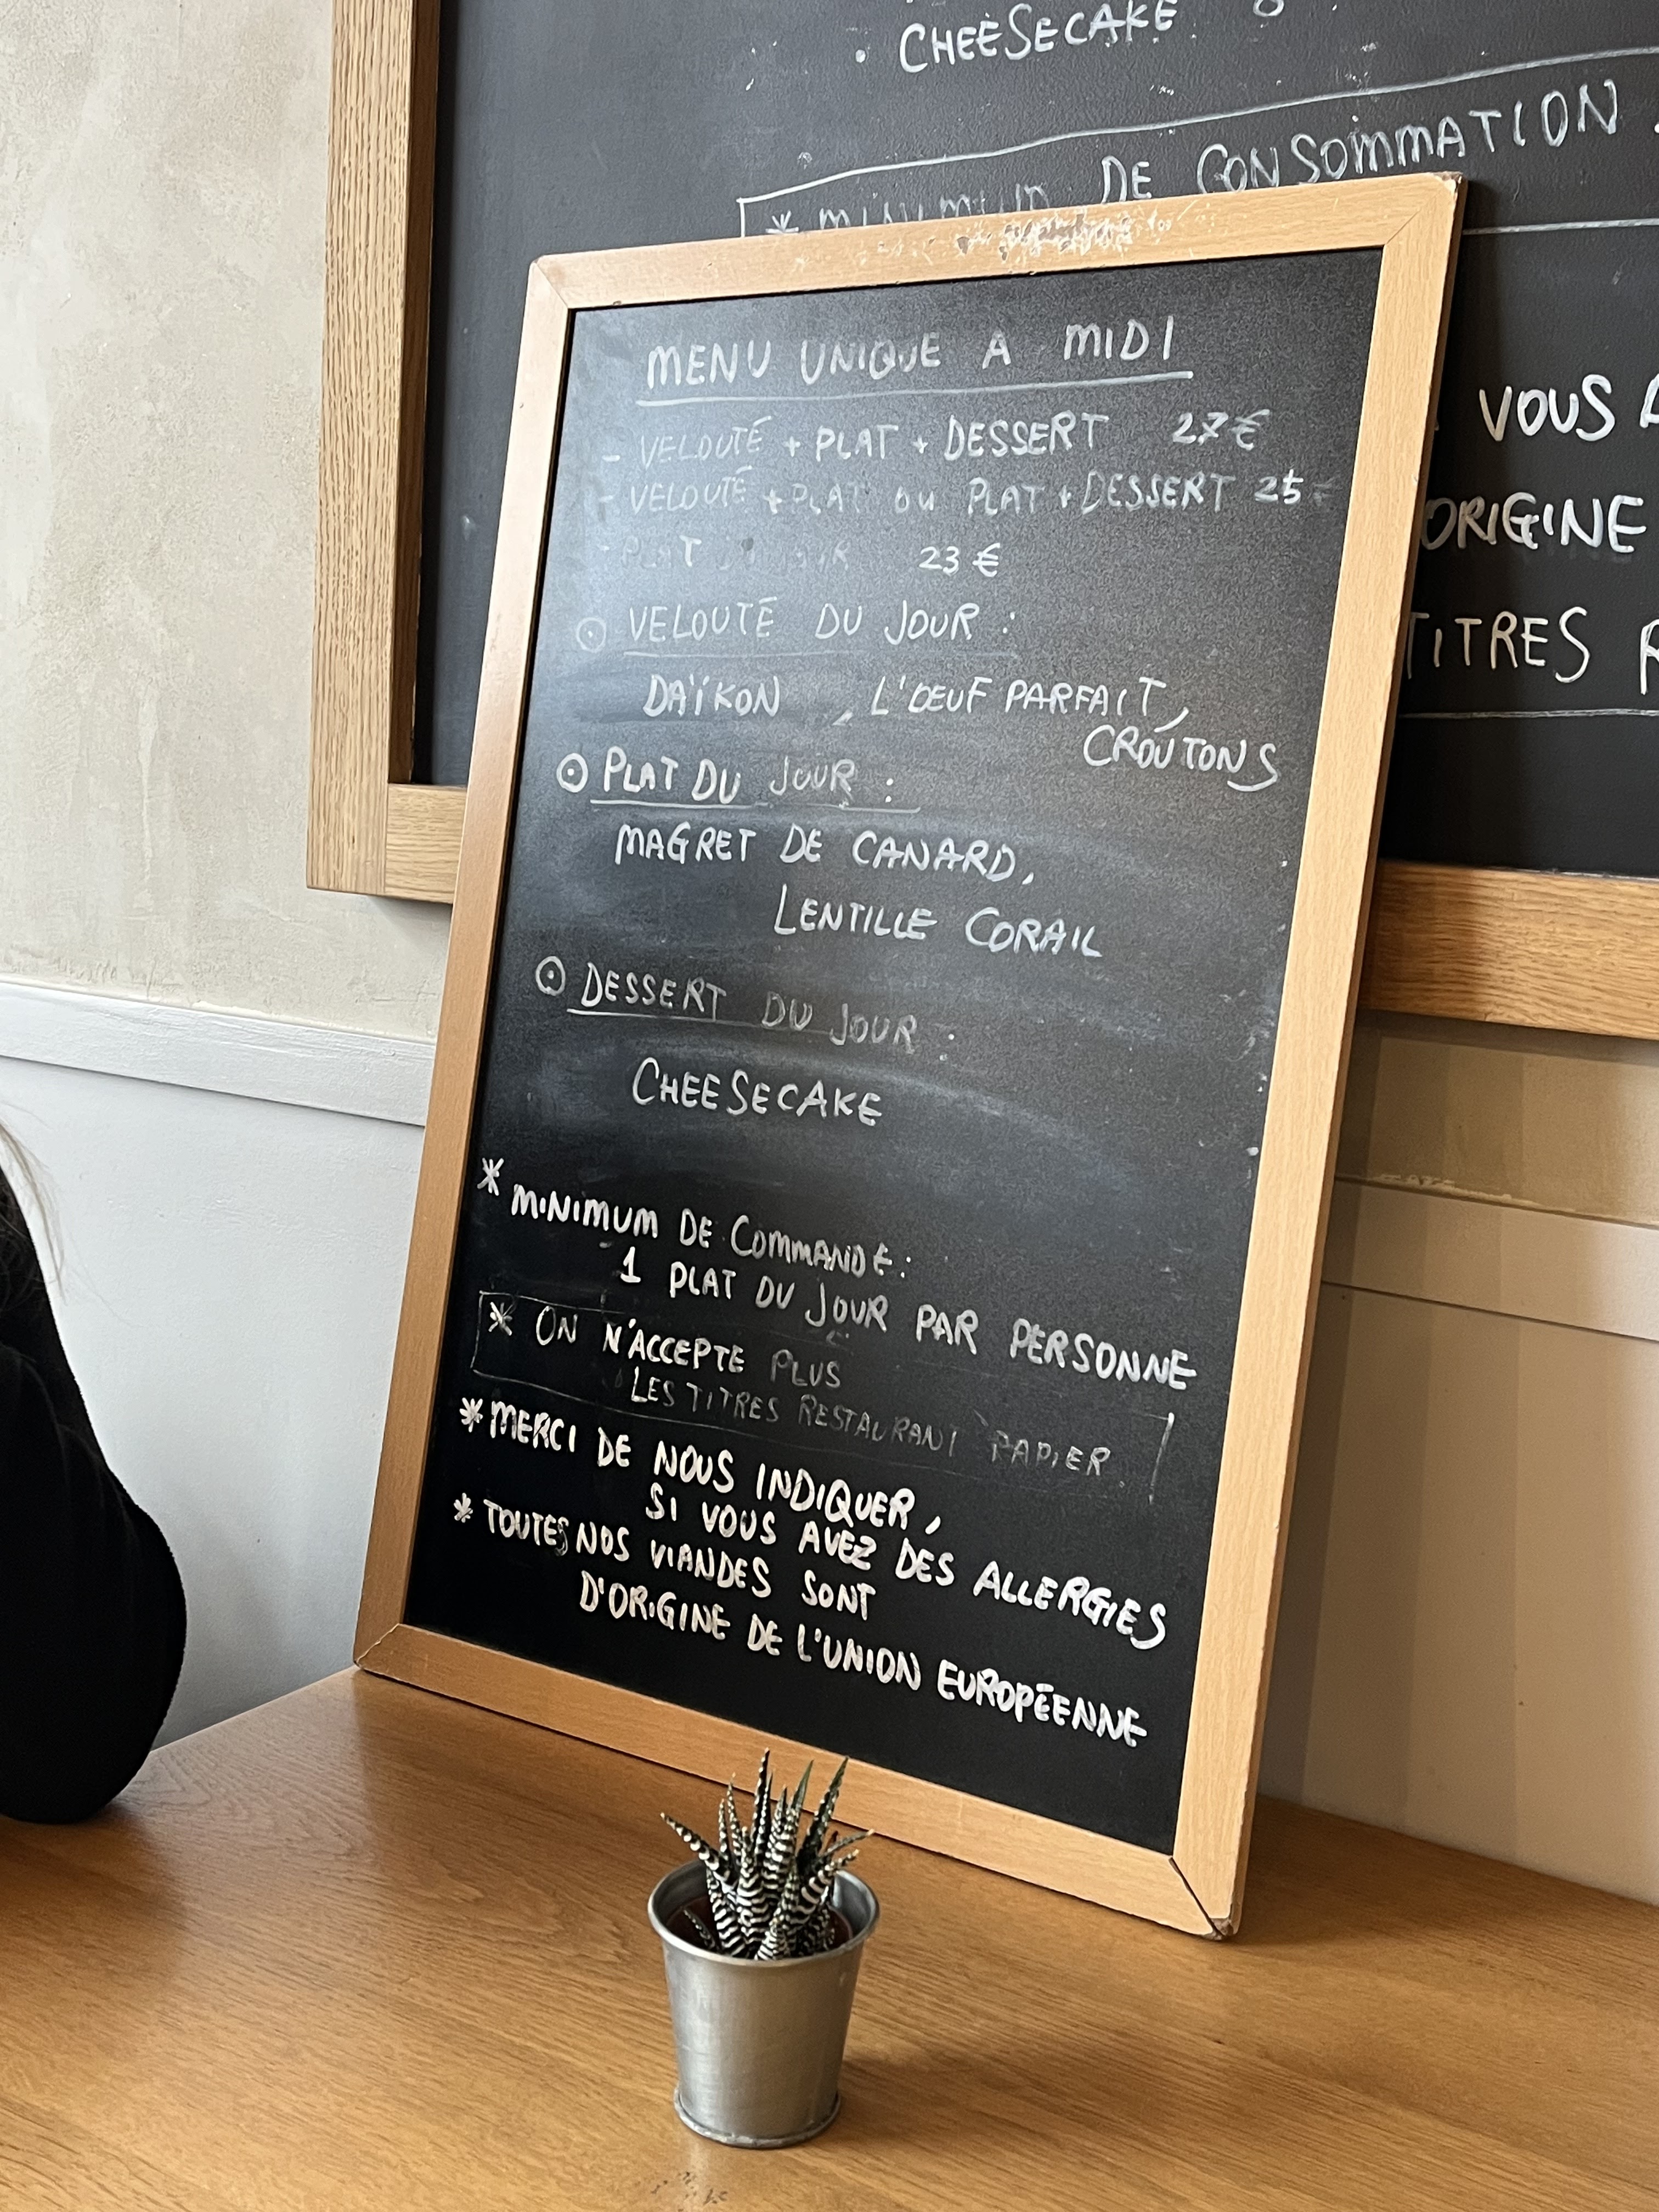 CHEESECAKE
* MINIMUM DE CONSOMMATION
VOUS
ORIGINE
TITRES
MENU UNIQUE A MIDI
- VELOUTÉ + PLAT + DESSERT 27€
- VELOUTÉ + PLAT OU PLAT + DESSERT 25
- PLAT DU JOUR 23€
VELOUTÉ DU JOUR :
DAÏKON , L'OEUF PARFAIT,
CROÛTONS
PLAT DU JOUR :
MAGRET DE CANARD,
LENTILLE CORAIL
DESSERT DU JOUR :
CHEESECAKE
* MINIMUM DE COMMANDE :
1 PLAT DU JOUR PAR PERSONNE
* ON N'ACCEPTE PLUS
LES TITRES RESTAURANT PAPIER
* MERCI DE NOUS INDIQUER,
SI VOUS AVEZ DES ALLERGIES
* TOUTES NOS VIANDES SONT
D'ORIGINE DE L'UNION EUROPÉENNE